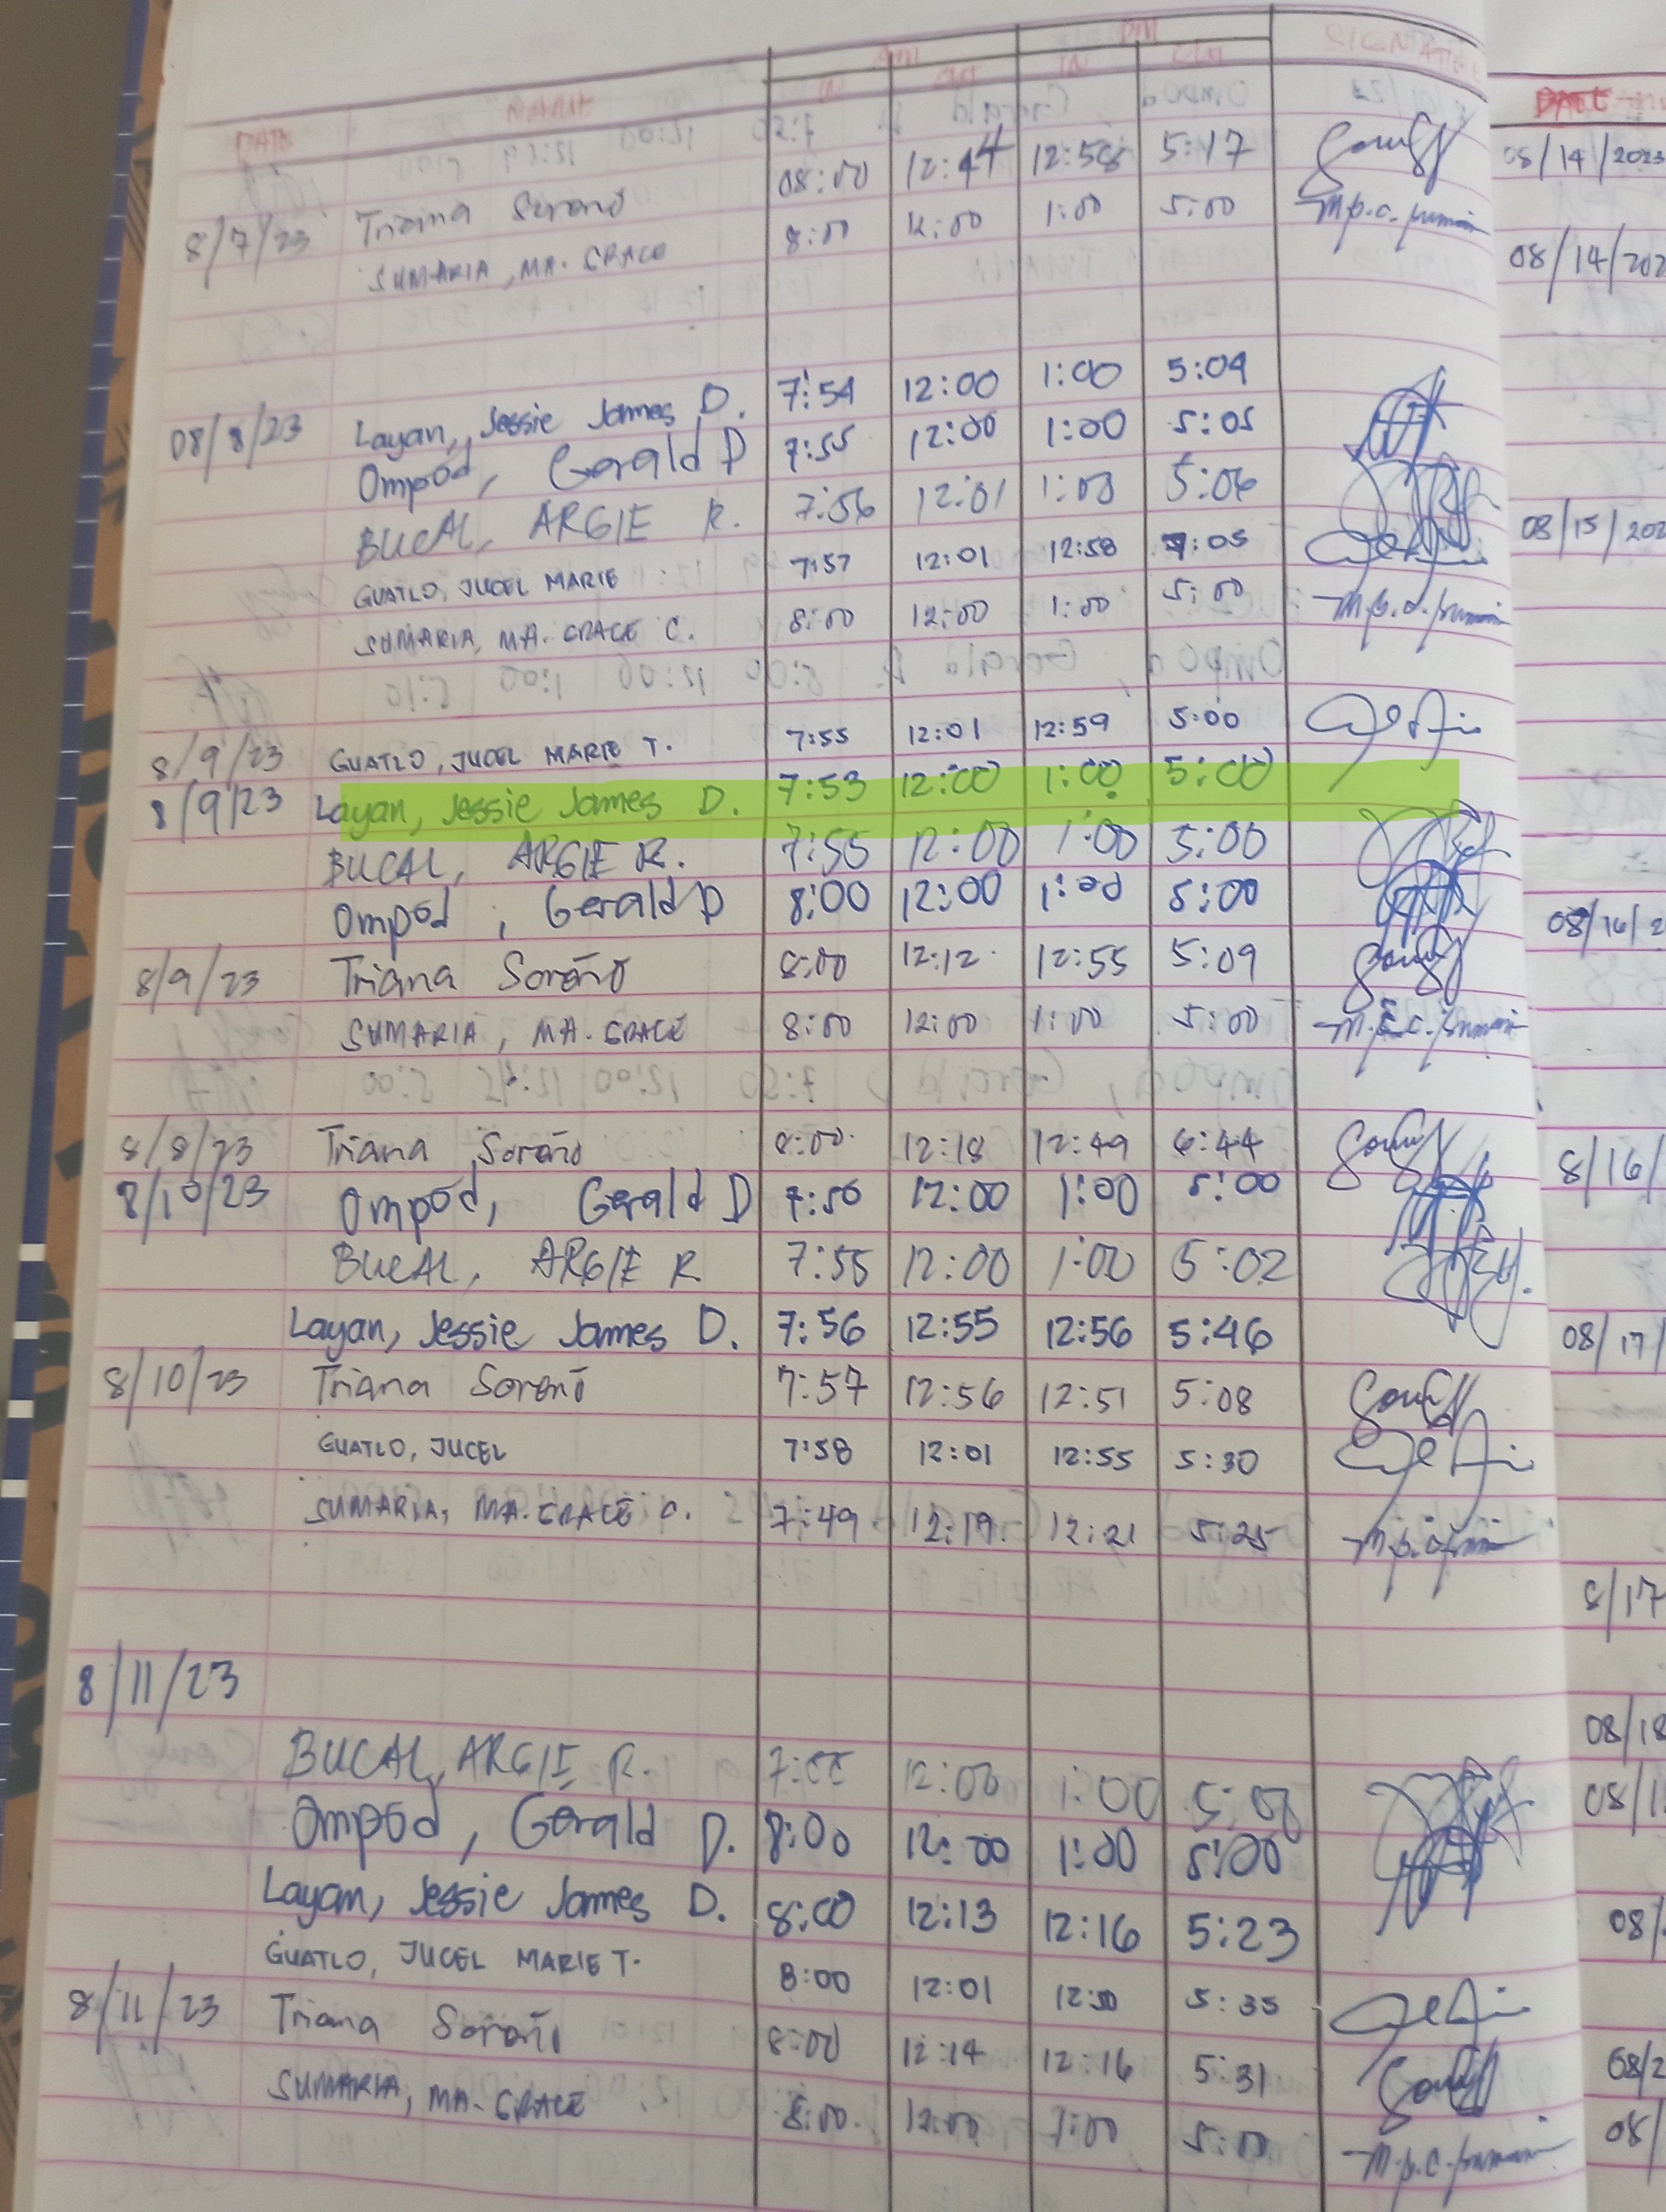 DATE
8/7/23 Triana Soreño 08:00 12:44 12:58 5:17
SUMARIA, MA. GRACE 8:00 12:00 1:00 5:00
08/8/23 Layan, Jessie James D. 7:54 12:00 1:00 5:04
Ompod, Gerald D 7:55 12:00 1:00 5:05
BUCAL, ARGIE R. 7:56 12:01 1:00 5:06
GUATLO, JUCEL MARIE 7:57 12:01 12:58 :05
SUMARIA, MA. GRACE C. 8:00 12:00 1:00 5:00
8/9/23 GUATLO, JUCEL MARIE T. 7:55 12:01 12:59 5:00
8/9/23 Layan, Jessie James D. 7:53 12:00 1:00 5:00
BUCAL, ARGIE R. 7:55 12:00 1:00 5:00
Ompod, Gerald D 8:00 12:00 1:00 5:00
8/9/23 Triana Soreño 8:00 12:12 12:55 5:09
SUMARIA, MA. GRACE 8:00 12:00 1:00 5:00
8/8/23 Triana Soreño 8:00 12:18 12:49 6:44
8/10/23 Ompod, Gerald D 7:50 12:00 1:00 5:00
BUCAL, ARGIE R 7:55 12:00 1:00 5:02
Layan, Jessie James D. 7:56 12:55 12:56 5:46
8/10/23 Triana Soreño 7:57 12:56 12:51 5:08
GUATLO, JUCEL 7:58 12:01 12:55 5:30
SUMARIA, MA. GRACE C. 7:49 12:19 12:21 5:25
8/11/23
BUCAL, ARGIE R. 12:00 1:00
Ompod, Gerald D. 8:00 12:00 1:00 5:00
Layan, Jessie James D. 8:00 12:13 12:16 5:23
GUATLO, JUCEL MARIE T. 8:00 12:01 12:50 5:35
8/11/23 Triana Soreño 8:00 12:14 12:16 5:31
SUMARIA, MA. GRACE 8:00 12:00 1:00 5:00
DATE
08/14/2023
08/14/202
08/15/202
08/16/2
8/16/
08/17/
8/17
08/18
08/1
08/
08/2
08/